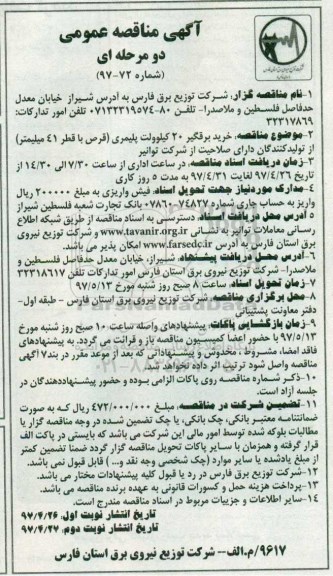 آگهی مناقصه عمومی
دو مرحله ای
(شماره ۷۲-۹۷)
۱-نام مناقصه گزار، شرکت توزیع برق فارس به آدرس شیراز خیابان معدل
حدفاصل فلسطین و ملاصدرا- تلفن ۸۰-۰۷۱۳۲۳۱۹۵۷۴ تلفن امور تدارکات:
۳۲۳۱۷۸۶۹
۲-موضوع مناقصه، خرید برقگیر ۲۰ کیلوولت پلیمری (قرص با قطر ۴۱ میلیمتر)
از تولیدکنندگان دارای صلاحیت از شرکت توانیر
۳-زمان دریافت اسناد مناقصه، در ساعت اداری از ساعت ۷/۳۰ الی ۱۴/۳۰ از
تاریخ ۹۷/۴/۲۶ لغایت ۹۷/۴/۳۱ به مدت ۵ روز کاری
۴-مدارک موردنیاز جهت تحویل اسناد، فیش واریزی به مبلغ ۲۰۰۰۰۰ ریال
واریز به حساب جاری شماره ۰۷۸۶۰۰۷۴۸۲۷ بانک تجارت شعبه فلسطین شیراز
۵ آدرس محل دریافت اسناد، دسترسی به اسناد مناقصه از طریق شبکه اطلاع
رسانی معاملات توانیر به نشانی www.tavanir.org.ir و شرکت توزیع نیروی
برق استان فارس به آدرس www.farsedc.ir امکان پذیر می باشد.
۶-آدرس محل دریافت پیشنهاد، شیراز، خیابان معدل حدفاصل فلسطین و
ملاصدرا- شرکت توزیع نیروی برق استان فارس امور تدارکات تلفن ۳۲۳۱۸۶۱۷
۷-زمان تحویل اسناد، ساعت ۸ صبح روز شنبه مورخ ۹۷/۵/۱۳
۸-محل برگزاری مناقصه، شرکت توزیع نیروی برق استان فارس - طبقه اول-
دفتر معاونت پشتیبانی
۹-زمان بازگشایی پاکات، پیشنهادهای واصله ساعت ۱۰ صبح روز شنبه مورخ
۹۷/۵/۱۳ با حضور اعضا کمیسیون مناقصه باز و قرائت می گردد. به پیشنهادهای
فاقد امضا، مشروط، مخدوش و پیشنهاداتی که بعد از موعد مقرر در بند۷ آگهی
مناقصه واصل شود ترتیب اثر داده نخواهد شد
۱۰-ذکر شماره مناقصه روی پاکات الزامی بوده و حضور پیشنهاددهندگان در
جلسه آزاد است.
۱۱-تضمین شرکت در مناقصه، مبلغ ۴۷۲/۰۰۰/۰۰۰ ریال که به صورت
ضمانتنامه معتبر بانکی، چک بانکی، یا چک تضمین شده در وجه مناقصه گزار یا
مطالبات بلوکه شده توسط امور مالی این شرکت می باشد که بایستی در پاکت الف
قرار گرفته و همزمان با سایر پاکات تحویل مناقصه گزار گردد ضمنا تضمین کمتر
از مبلغ یادشده یا سایر موارد (چک شخصی وجه نقد و...) قابل قبول نمی باشد.
۱۲-شرکت توزیع برق فارس در رد یا قبول کلیه پیشنهادات مختار می باشد.
۱۳-پرداخت هزینه حمل و کسورات قانونی به عهده برنده مناقصه می باشد.
۱۴-سایر اطلاعات و جزییات مربوط در اسناد مناقصه مندرج است.
تاریخ انتشار نوبت اول: ۹۷/۴/۲۶
تاریخ انتشار نوبت دوم: ۹۷/۴/۲۷
۹۶۱۷/م.الف- شرکت توزیع نیروی برق استان فارس